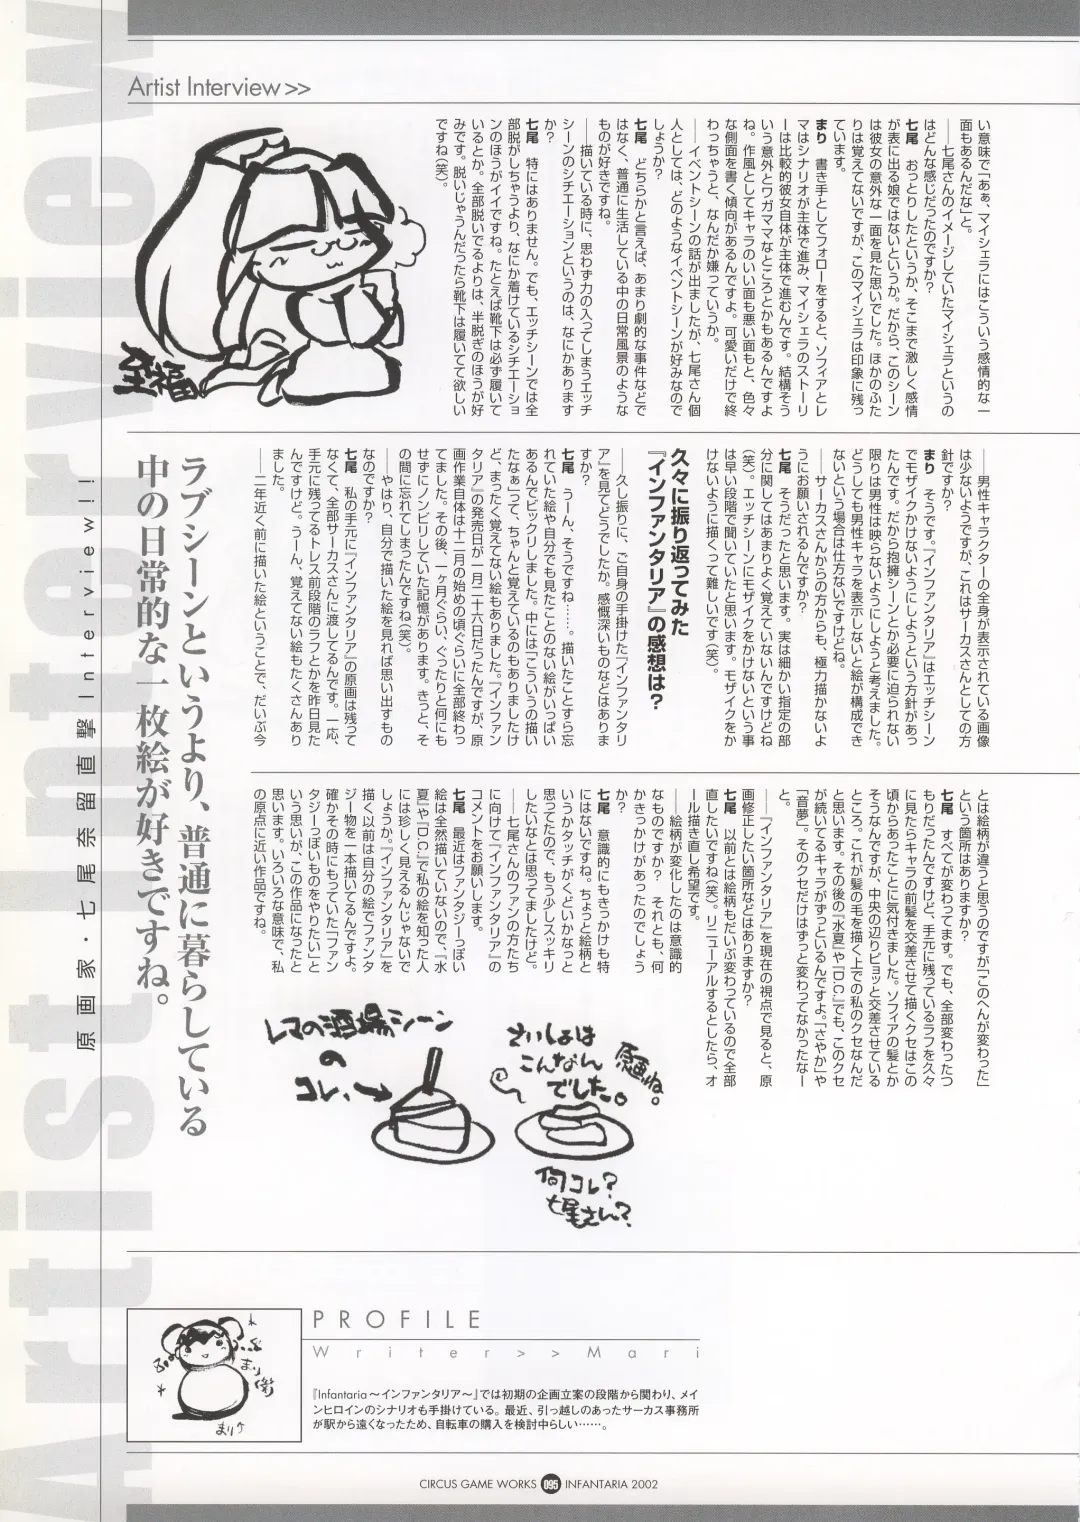 Artist Interview>>
い意味で「あぁ、マイシェラにはこういう感情的な一
面もあるんだな」と。
――七尾さんのイメージしていたマイシェラというの
はどんな感じだったのですか？
七尾　おっとりしたというか、そこまで激しく感情
が表に出る娘ではないというか。だから、このシーン
は彼女の意外な一面を見た思いでした。ほかのふた
りは覚えてないですが、このマイシェラは印象に残っ
ています。
まり　書き手としてフォローをすると、ソフィアとレ
マはシナリオが主体で進み、マイシェラのストーリ
ーは比較的彼女自体が主体で進むんです。結構そう
いう意外とワガママなところとかもあるんですよ
ね。作風としてキャラのいい面も悪い面もと、色々
な側面を書く傾向があるんですよ。可愛いだけで終
わっちゃうと、なんだか嫌っていうか。
――イベントシーンの話が出ましたが、七尾さん個
人としては、どのようなイベントシーンが好みなので
しょうか？
七尾　どちらかと言えば、あまり劇的な事件などで
はなく、普通に生活している中の日常風景のような
ものが好きですね。
――描いている時に、思わず力の入ってしまうエッチ
シーンのシチエーションというのは、なにかあります
か？
七尾　特にはありません。でも、エッチシーンでは全
部脱がしちゃうより、なにか着けているシチエーショ
ンのほうがイイですね。たとえば靴下は必ず履いて
いるとか。全部脱いでるよりは、半脱ぎのほうが好
みです。脱いじゃうんだったら靴下は履いてて欲しい
ですね（笑）。
至福
――男性キャラクターの全身が表示されている画像
は少ないようですが、これはサーカスさんとしての方
針ですか？
まり　そうです。『インファンタリア』はエッチシーン
でモザイクかけないようにしようという方針があっ
たんです。だから抱擁シーンとか必要に迫られない
限りは男性は映らないようにしようと考えました。
どうしても男性キャラを表示しないと絵が構成でき
ないという場合は仕方ないですけどね。
――サーカスさんからの方からも、極力描かないよ
うにお願いされるんですか？
七尾　そうだったと思います。実は細かい指定の部
分に関してはあまりよく覚えていないんですけどね
（笑）。エッチシーンにモザイクをかけないという事
は早い段階で聞いていたと思います。モザイクをか
けないように描くって難しいです（笑）。
久々に振り返ってみた
『インファンタリア』の感想は？
――久し振りに、ご自身の手掛けた『インファンタリ
ア』を見てどうでしたか。感慨深いものなどはありま
すか？
七尾　うーん、そうですね……。描いたことすら忘
れていた絵や自分でも見たことのない絵がいっぱい
あるんでビックリしました。中には「こういうの描い
たなぁ」って、ちゃんと覚えているのもありましたけ
ど、まったく覚えてない絵もありました。『インファン
タリア』の発売日が一月二十六日だったんですが、原
画作業自体は十二月の始めの頃ぐらいに全部終わっ
てました。その後、一ヶ月ぐらい、ぐったりと何にも
せずにノンビリしていた記憶があります。きっと、そ
の間に忘れてしまったんですね（笑）。
――やはり、自分で描いた絵を見れば思い出すもの
なのですか？
七尾　私の手元に『インファンタリア』の原画は残って
なくて、全部サーカスさんに渡してるんです。一応、
手元に残ってるトレス前段階のラフとかを昨日見た
んですけど。うーん、覚えてない絵もたくさんあり
ました。
――二年近く前に描いた絵ということで、だいぶ今
ラブシーンというより、普通に暮らしている
中の日常的な一枚絵が好きですね。
原画家・七尾奈留直撃Interview!!
Artist Interview
とは絵柄が違うと思うのですが「このへんが変わった」
という箇所はありますか？
七尾　すべてが変わってます。でも、全部変わったつ
もりだったんですけど、手元に残っているラフを久々
に見たらキャラの前髪を交差させて描くクセはこの
頃からあったことに気付きました。ソフィアの髪とか
そうなんですが、中央の辺りピョッと交差させている
ところ。これが髪の毛を描く上での私のクセなんだ
と思います。その後の『水夏』や『D.C.』でも、このクセ
が続いてるキャラがずっといるんですよ。「さやか」や
「音夢」。そのクセだけはずっと変わってなかったなー
と。
――『インファンタリア』を現在の視点で見ると、原
画修正したい箇所などはありますか？
七尾　以前とは絵柄もだいぶ変わっているので全部
直したいですね（笑）。リニューアルするとしたら、オ
ール描き直し希望です。
――絵柄が変化したのは意識的
なものですか？　それとも、何
かきっかけがあったのでしょう
か？
七尾　意識的にもきっかけも特
にはないですね。ちょっと絵柄と
いうかタッチがくどいかなっと
思ってたので、もう少しスッキリ
したいなとは思ってましたけど。
――七尾さんのファンの方たち
に向けて『インファンタリア』の
コメントをお願いします。
七尾　最近はファンタジーっぽい
絵は全然描いていないので、『水
夏』や『D.C.』で私の絵を知った人
には珍しく見えるんじゃないで
しょうか。『インファンタリア』を
描く以前は自分の絵でファンタ
ジー物を一本描いてるんですよ。
確かその時にもっていた「ファン
タジーっぽいものをやりたい」と
いう思いが、この作品になったと
思います。いろいろな意味で、私
の原点に近い作品ですね。
レマの酒場シーン
の
コレ、→
さいしょは
こんなん
でした。
原画ね。
何コレ？
七尾さん？
PROFILE
Writer>>Mari
『Infantaria～インファンタリア～』では初期の企画立案の段階から関わり、メイ
ンヒロインのシナリオも手掛けている。最近、引っ越しのあったサーカス事務所
が駅から遠くなったため、自転車の購入を検討中らしい……。
CIRCUS GAME WORKS 095 INFANTARIA 2002